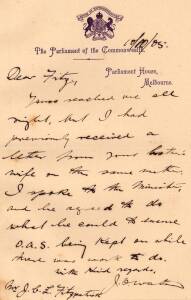 The Parliament of the Commonwealth.
Parliament House,
Melbourne.
Dear Fitz,
Yours reached me all
right, but I had
previously received a
letter from your
wife on the same matter.
I spoke to the Minister,
and he agreed to do
what he could to ensure
O.A.S. being kept on while
there was work to do.
With kind regards,
J C Watson
Mr J. C. L. Fitzpatrick